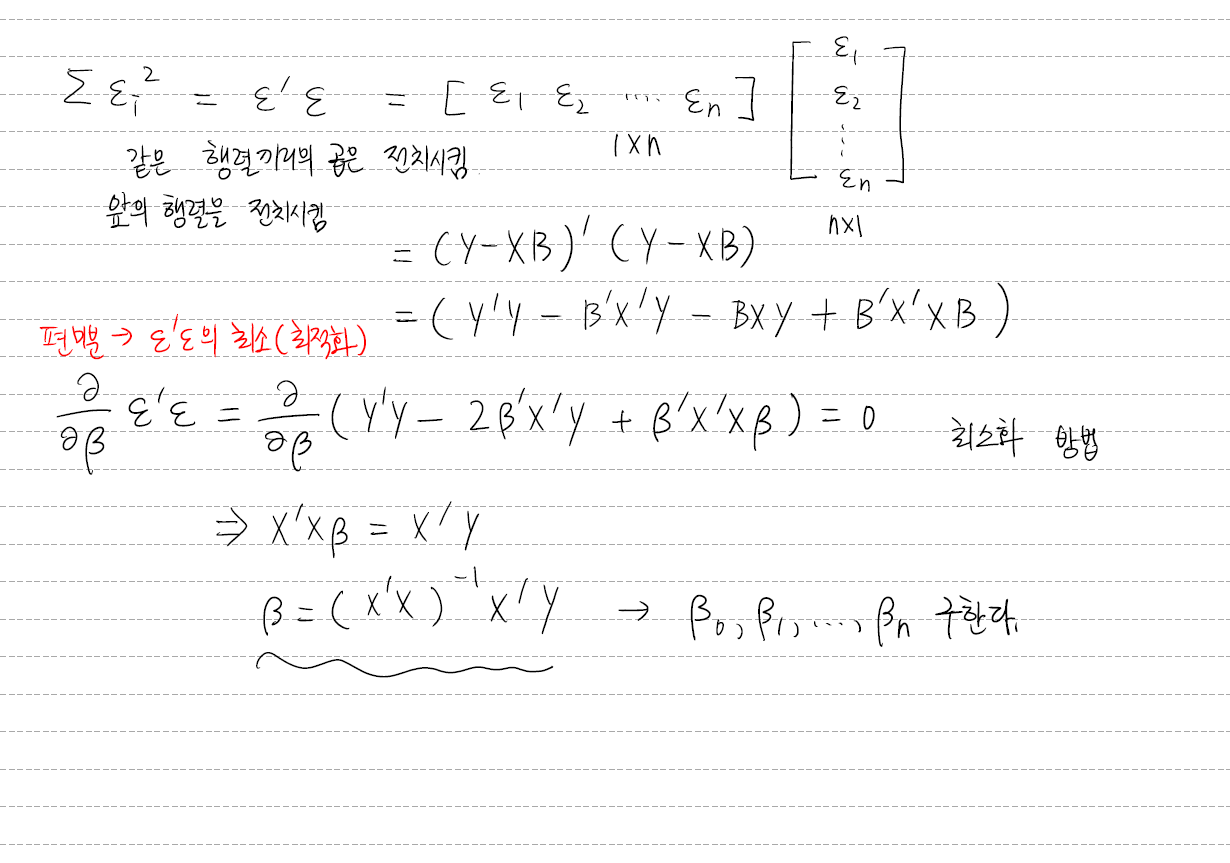 Σ εᵢ² = ε'ε = [ ε₁ ε₂ ···· εₙ ] [ ε₁ ε₂ ⋮ εₙ ]
1×n
같은 행렬끼리의 곱은 전치시킴
앞의 행렬을 전치시킴
n×1
= (Y-XB)' (Y-XB)
= ( Y'Y - B'X'Y - BXY + B'X'XB )
편미분 → ε'ε의 최소(최적화)
∂/∂β ε'ε = ∂/∂β ( Y'Y - 2β'X'Y + β'X'Xβ ) = 0 최소화 방법
⇒ X'Xβ = X'Y
β = (X'X)⁻¹X'Y → β₀, β₁, ..., βₙ 구한다.